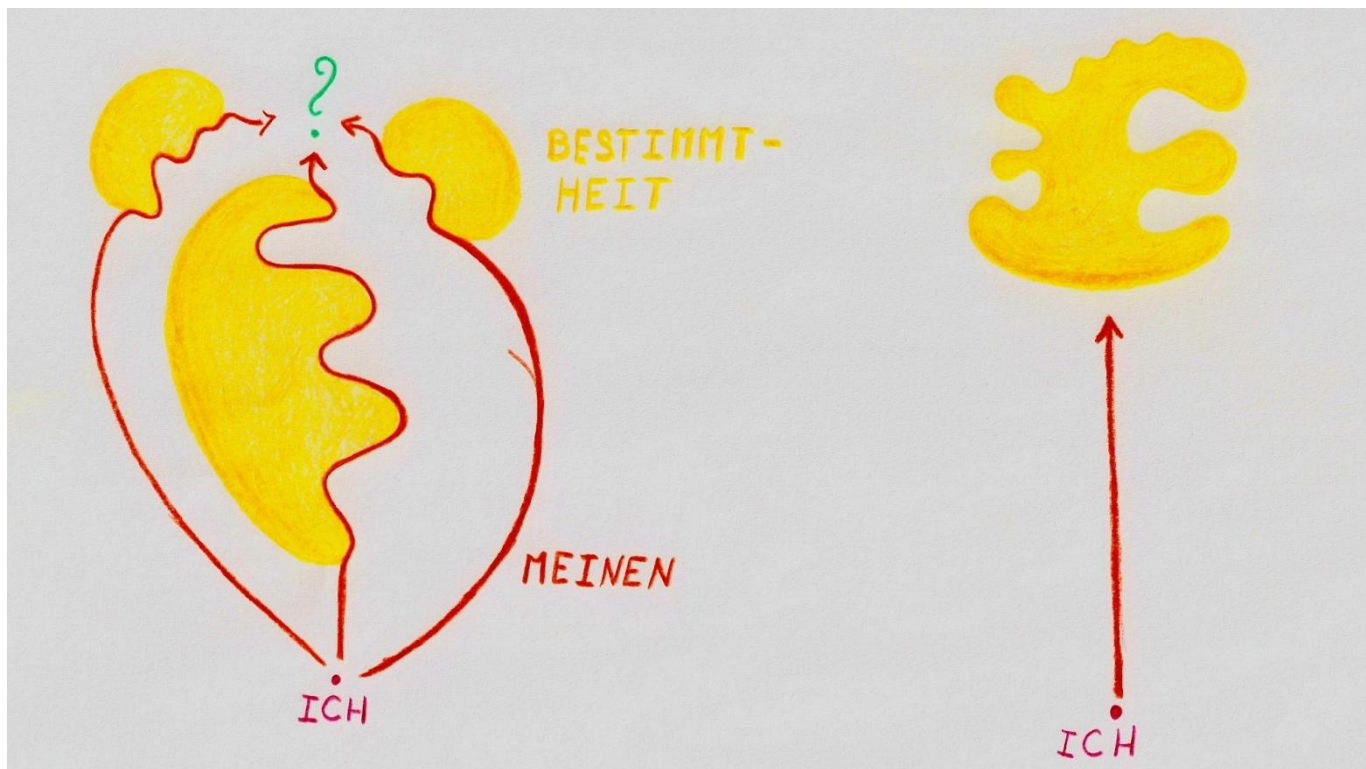 ?
BESTIMMT-
HEIT
MEINEN
ICH
ICH